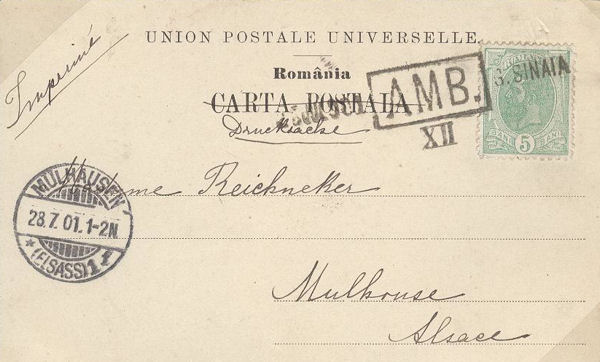 UNION POSTALE UNIVERSELLE.
Imprimé
România
CARTA POSTALA
Drucksache
AMB.
XII
G. SINAIA
5
BANI
MÜLHAUSEN
28.7.01.1-2N.
*(ELSASS)1f
Madame Reichneker
Mulhouse
Alsace